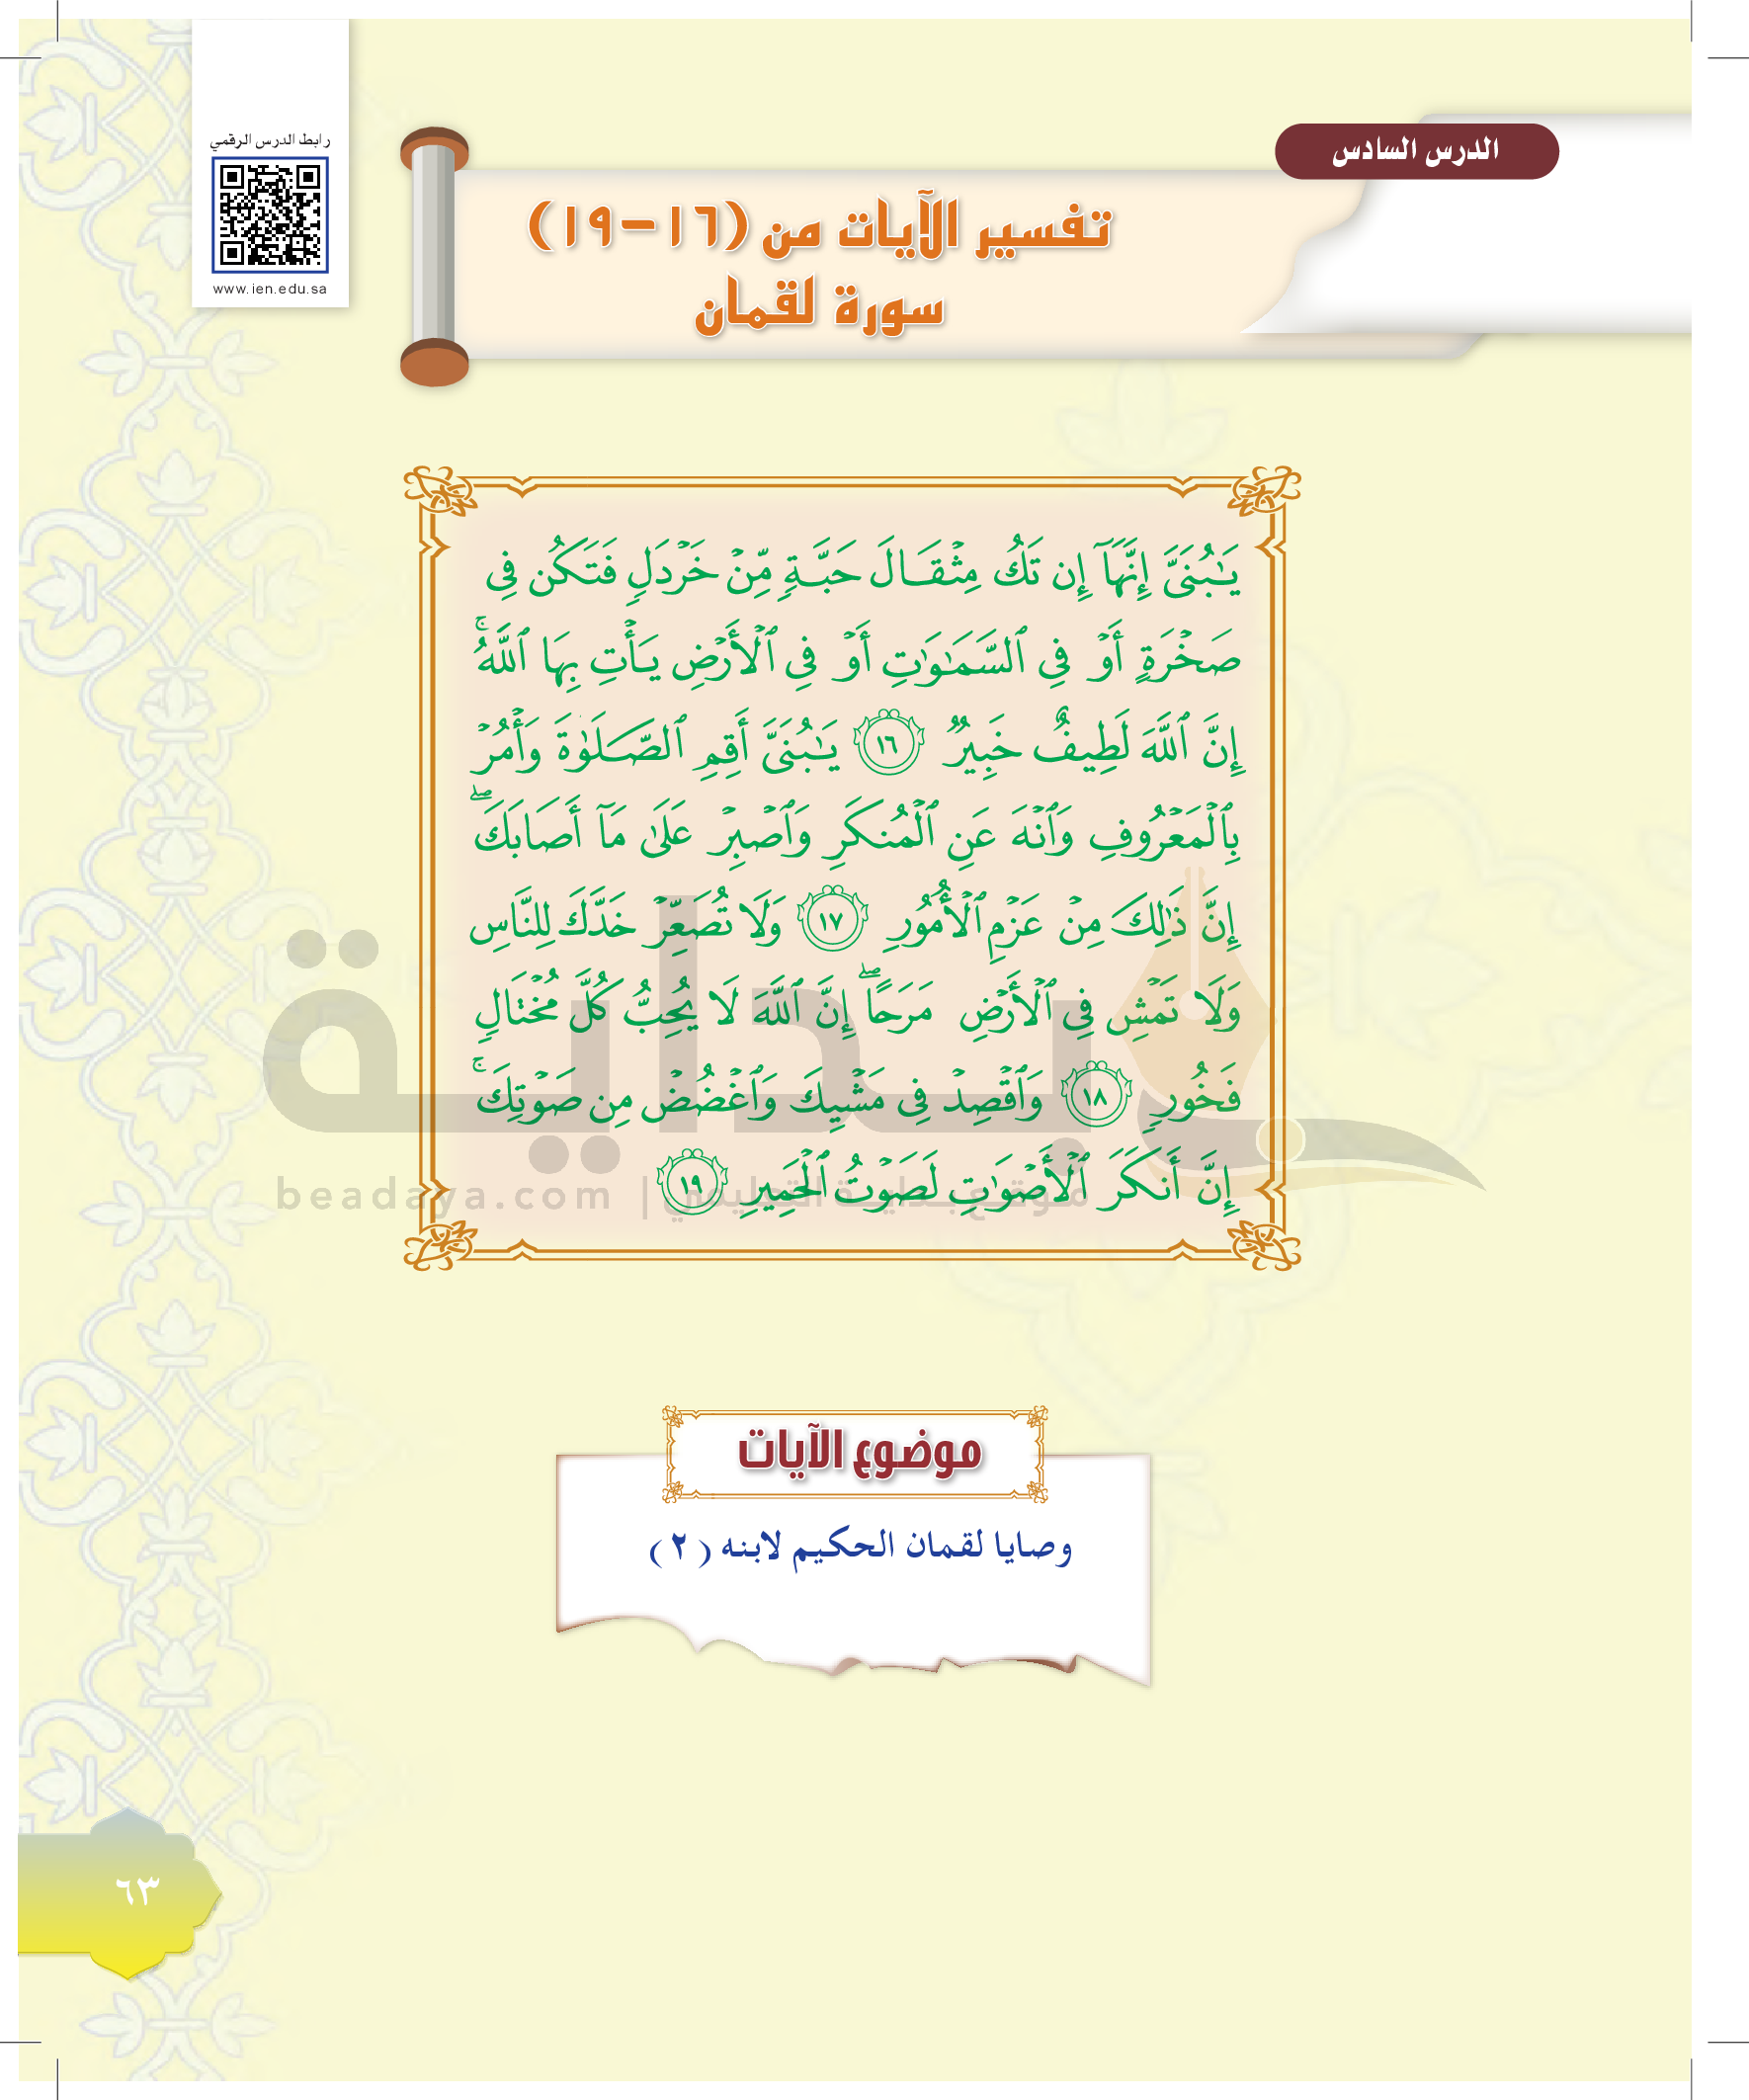 الدرس السادس
رابط الدرس الرقمي
www.ien.edu.sa
تفسير الآيات من (١٦-١٩)
سورة لقمان
يَـٰبُنَىَّ إِنَّهَآ إِن تَكُ مِثْقَـالَ حَبَّـةٍ مِّنْ خَرْدَلٍ فَتَكُن فِى
صَخْرَةٍ أَوْ فِى ٱلسَّمَـٰوَٰتِ أَوْ فِى ٱلْأَرْضِ يَـأْتِ بِهَا ٱللَّهُ ۚ
إِنَّ ٱللَّهَ لَطِيفٌ خَبِيرٌ ١٦ يَـٰبُنَىَّ أَقِمِ ٱلصَّـلَوٰةَ وَأْمُرْ
بِٱلْمَعْرُوفِ وَٱنْهَ عَنِ ٱلْمُنكَرِ وَٱصْبِرْ عَلَىٰ مَآ أَصَابَكَ ۖ
إِنَّ ذَٰلِكَ مِنْ عَزْمِ ٱلْأُمُورِ ١٧ وَلَا تُصَعِّرْ خَدَّكَ لِلنَّاسِ
وَلَا تَمْشِ فِى ٱلْأَرْضِ مَرَحًا ۖ إِنَّ ٱللَّهَ لَا يُحِبُّ كُلَّ مُخْتَالٍ
فَخُورٍ ١٨ وَٱقْصِدْ فِى مَشْيِكَ وَٱغْضُضْ مِن صَوْتِكَ ۚ
إِنَّ أَنكَرَ ٱلْأَصْوَٰتِ لَصَوْتُ ٱلْحَمِيرِ ١٩
بداية
موقع بداية التعليمي | beadaya.com
موضوع الآيات
وصايا لقمان الحكيم لابنه (٢)
٦٣